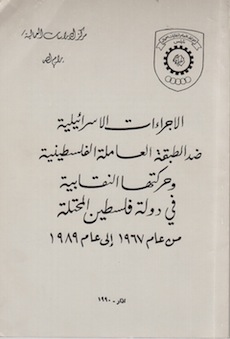 مركز الدراسات العمالية /
رام الله
الاجراءات الاسرائيلية
ضد الطبقة العاملة الفلسطينية
وحركتها النقابية
في دولة فلسطين المحتلة
من عام ١٩٦٧ إلى عام ١٩٨٩
اذار - ١٩٩٠